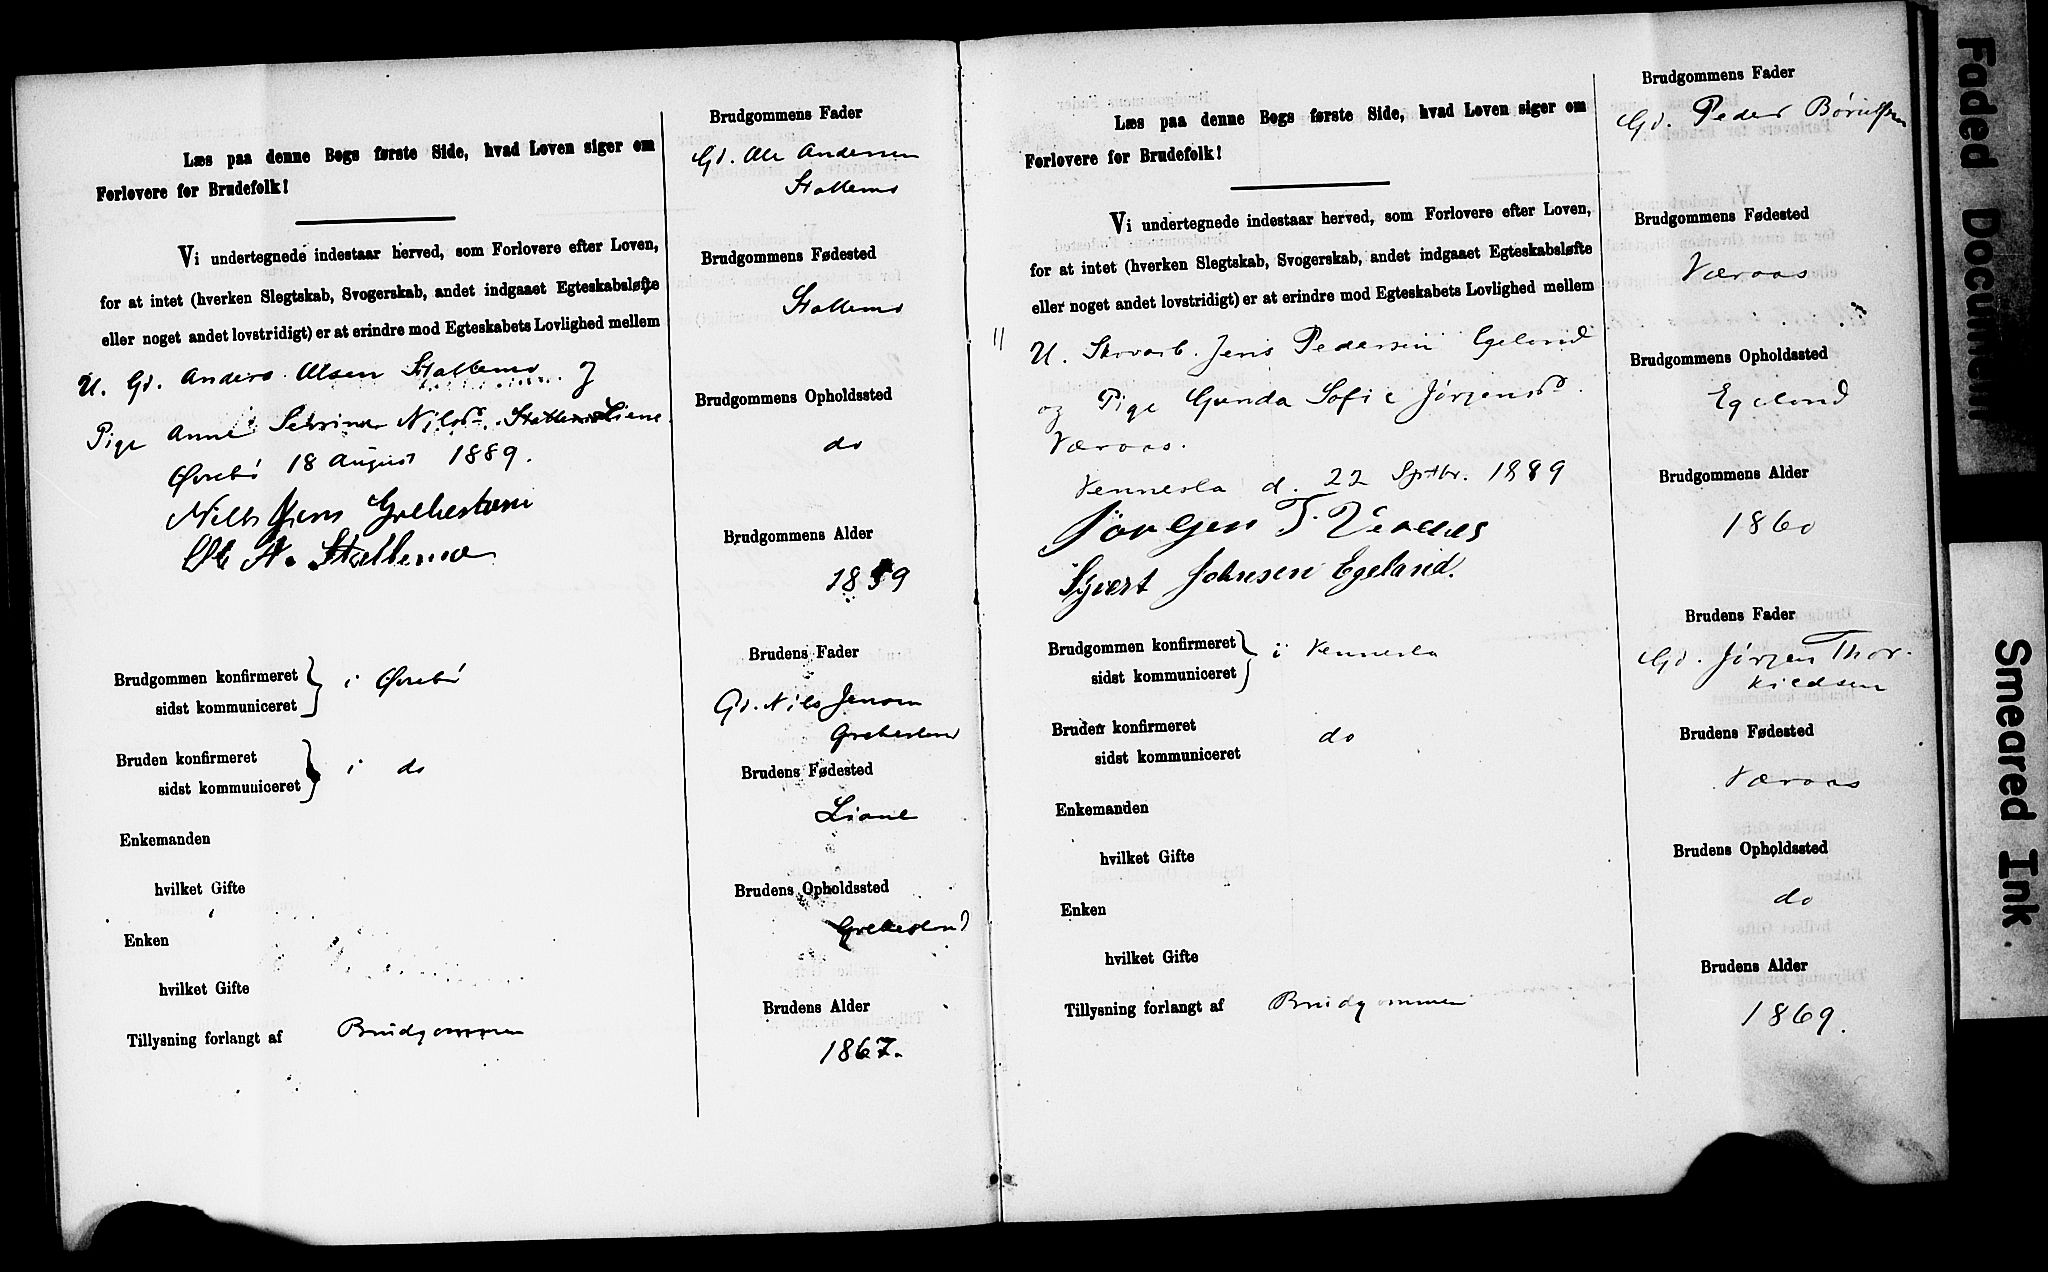 Læs paa denne Bogs første Side, hvad Loven siger om
Forlovere for Brudefolk!
Vi undertegnede indestaar herved, som Forlovere efter Loven,
for at intet (hverken Slegtskab, Svogerskab, andet indgaaet Egteskabsløfte
eller noget andet lovstridigt) er at erindre mod Egteskabets Lovlighed mellem
U. Gd. Anders Olsen Stallemo og
Pige Anne Nilsd. Liene
Øvrebø 18 August 1889.
Nills Jens Grebestæin
Ole A. Stallemo
Brudgommen konfirmeret
sidst kommuniceret
i Øvrebø
Bruden konfirmeret
sidst kommuniceret
i do
Enkemanden
hvilket Gifte
Enken
hvilket Gifte
Tillysning forlangt af Brudgommen
Brudgommens Fader
Gd. Ole Andersen
Stallemo
Brudgommens Fødested
Stallemo
Brudgommens Opholdssted
do
Brudgommens Alder
1859
Brudens Fader
Gd. Nils Jensen
Grebesland
Brudens Fødested
Liane
Brudens Opholdssted
Grebesland
Brudens Alder
1867.
Læs paa denne Bogs første Side, hvad Loven siger om
Forlovere for Brudefolk!
Vi undertegnede indestaar herved, som Forlovere efter Loven,
for at intet (hverken Slegtskab, Svogerskab, andet indgaaet Egteskabsløfte
eller noget andet lovstridigt) er at erindre mod Egteskabets Lovlighed mellem
U. Skovarb. Jens Pedersen Egeland
og Pige Gunda Sofie Jørgensd.
Væraas.
Vennesla d. 22 Septbr. 1889
Jørgen T. Veraas
Sjvert Johnsen Egeland.
Brudgommen konfirmeret
sidst kommuniceret
i Vennesla
Bruden konfirmeret
sidst kommuniceret
do
Enkemanden
hvilket Gifte
Enken
hvilket Gifte
Tillysning forlangt af Brudgommen
Brudgommens Fader
Gd. Peder
Brudgommens Fødested
Væraas
Brudgommens Opholdssted
Egeland
Brudgommens Alder
1860
Brudens Fader
Gd. Jørgen Thor-
kildsen
Brudens Fødested
Væraas
Brudens Opholdssted
do
Brudens Alder
1869.
Faded Document
Smeared Ink